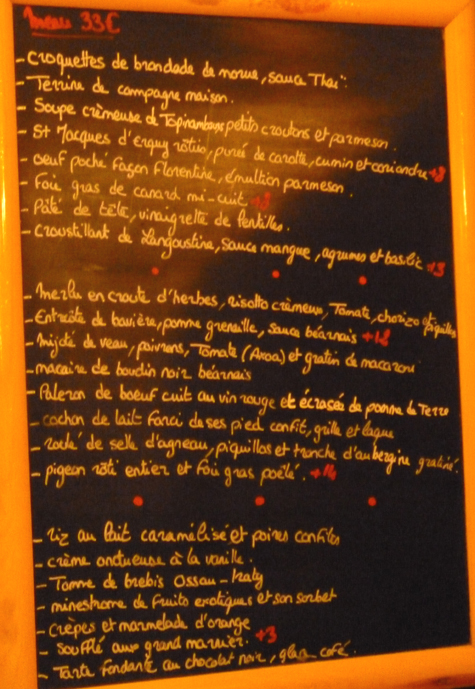 Menu 33€
- Croquettes de brandade de morue, sauce Thaï.
- Terrine de campagne maison.
- Soupe crèmeuse de Topinambours petits croutons et parmesan.
- St Jacques d'Erquy rôties, purée de carotte, cumin et coriandre +3
- Oeuf poché façon Florentine, émultion parmesan.
- Foie gras de canard mi-cuit +3
- Pâté de tête, vinaigrette de lentilles.
- Croustillant de Langoustine, sauce mangue, agrumes et basilic +3
- Merlu en croute d'herbes, risotto crèmeux, Tomate, chorizo et piquillos
- Entrecôte de bavière, pomme grenaille, sauce béarnais +12
- Mijoté de veau, poivrons, Tomate (Axoa) et gratin de macaroni
- macaire de boudin noir béarnais
- Paleron de boeuf cuit au vin rouge et écrasée de pomme de Terre
- cochon de lait farci de ses pied confit, grillé et laqué
- rosté de selle d'agneau, piquillos et tranche d'aubergine gratiné.
- pigeon rôti entier et foie gras poêlé. +14
- riz au lait caramélisé et poires confites
- crème onctueuse à la vanille.
- Tomme de brebis Ossau-Iraty
- minestrone de fruits exotiques et son sorbet
- Crèpes et marmelade d'orange
- Soufflé aux grand marnier. +3
- Tarte fondante au chocolat noir, glace café.